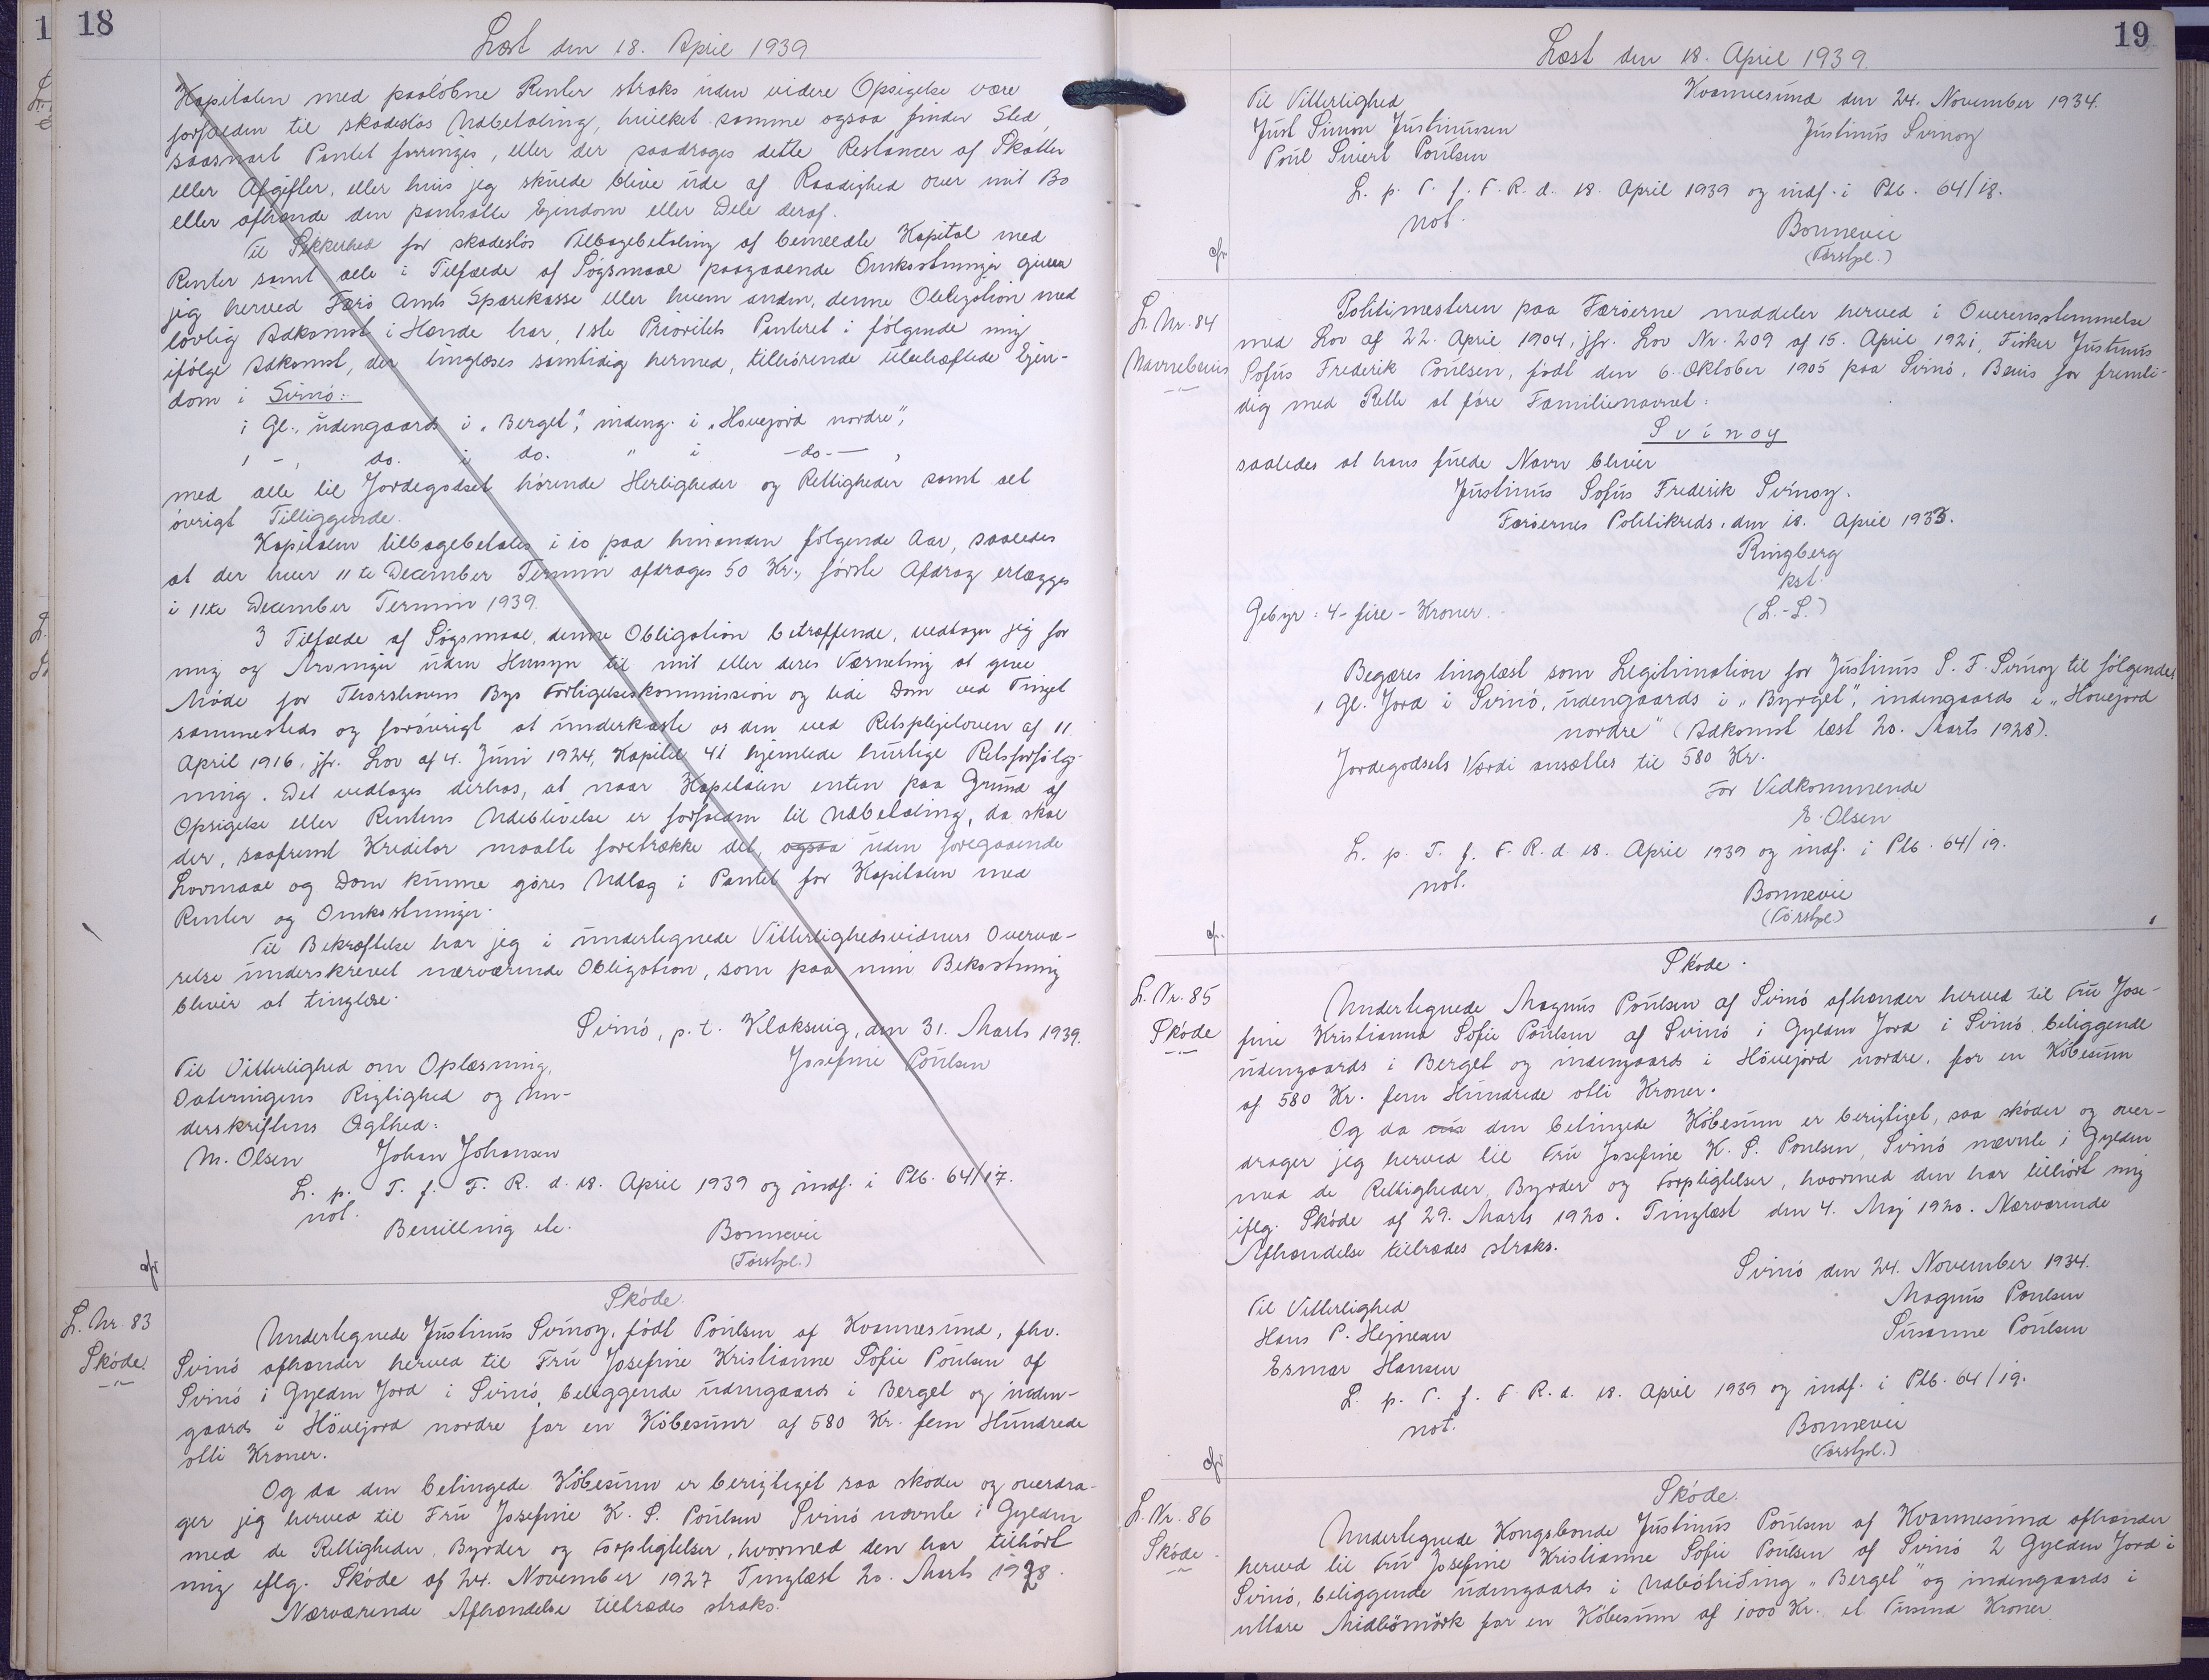 18
Læst den 18. April 1939
Kapitalen med paaløbne Renter straks uden videre Opsigelse være
forfalden til skadesløs Udbetaling, hvilket samme ogsaa finder Sted,
saasnart Pantet forringes, eller der paadrages dette Restancer af Skatter
eller Afgifter, eller hvis jeg skulde blive ude af Raadighed over mit Bo
eller afhænde den pantsatte Ejendom eller Dele deraf.
Til Sikkerhed for skadesløs Tilbagebetaling af bemeldte Kapital med
Renter samt alle i Tilfælde af Søgsmaal paagaaende Omkostninger giver
jeg herved Færø Amts Sparekasse eller hvem anden, denne Obligation med
lovlig Adkomst i Hænde har, 1ste Prioritets Panteret i følgende mig
ifølge Adkomst, der tinglæses samtidig hermed, tilhørende ubehæftede Ejen-
dom i Svinø:
1 Gl., udengaards i "Berget", indeng. i "Høvejord nordre",
1 - , do. i do. " i -do.- ,
med alle til Jordegodset hørende Herligheder og Rettigheder samt alt
øvrigt Tilliggende.
Kapitalen tilbagebetales i 10 paa hinanden følgende Aar, saaledes
at der hver 11te December Termin afdrages 50 Kr., første Afdrag erlægges
i 11te December Termin 1939.
I Tilfælde af Søgsmaal, denne Obligation betræffende, vedtager jeg for
mig og Arvinger uden Hensyn til mit eller deres Værneting at give
Møde for Thorshavns Bys Forligelseskommission og lide Dom ved Tinget
sammesteds og forøvrigt at underkaste os den ved Retsplejeloven af 11.
April 1916, jfr. Lov af 4. Juni 1924, Kapitel 41 hjemlede hurtige Retsforfølg-
ning. Det vedtages derhos, at naar Kapitalen enten paa Grund af
Opsigelse eller Rentens Udeblivelse er forfalden til Udbetaling, da skal
der, saafremt Kreditor maatte foretrække det, ogsaa uden foregaaende
Lovmaal og Dom kunne gøres Udlæg i Pantet for Kapitalen med
Renter og Omkostninger.
Til Bekræftelse har jeg i undertegnede Vitterlighedsvidners Overvæ-
relse underskrevet nærværende Obligation, som paa min Bekostning
bliver at tinglæse.
Svinø, p.t. Klaksvig, den 31. Marts 1939.
Josefine Poulsen
Til Vitterlighed om Oplæsning,
Dateringens Rigtighed og Un-
derskriftens Ægthed:
M. Olsen Johan Johansen
L. p. T. f. F. R. d. 18. April 1939 og indf. i Ptb. 64/17.
not.
Bevilling etc. Bonnevie
(Tørstpl.)
L. Nr. 83
Skøde.
Skøde.
Undertegnede Justinus Svinoy, født Poulsen af Kvannesund, fhv.
Svinø afhænder herved til Fru Josefine Kristianne Sofie Poulsen af
Svinø 1 Gylden Jord i Svinø, beliggende udengaards i Berget og inden-
gaards i Høvejord nordre for en Købesum af 580 Kr. fem Hundrede
otti Kroner.
Og da den betingede Købesum er berigtiget saa skøder og overdra-
ger jeg herved til Fru Josefine K. S. Poulsen Svinø nævnte 1 Gylden
med de Rettigheder, Byrder og Forpligtelser, hvormed den har tilhørt
mig iflg. Skøde af 24. November 1927 Tinglæst 20. Marts 1928.
Nærværende Afhændelse tiltrædes straks.
19
Læst den 18. April 1939.
Til Vitterlighed Kvannesund den 24. November 1934.
Just Simon Justinussen Justinus Svinoy
Poul Sivert Poulsen
L. p. T. f. F. R. d. 18. April 1939 og indf. i Ptb. 64/18.
not. Bonnevie
(Tørstpl.)
L. Nr. 84
Navnebevis
Politimesteren paa Færøerne meddeler herved i Overensstemmelse
med Lov af 22. April 1904, jfr. Lov Nr. 209 af 15. April 1921, Fisker Justinus
Sofus Frederik Poulsen, født den 6. Oktober 1905 paa Svinø, Bevis for fremti-
dig med Rette at føre Familienavnet:
Svinoy
saaledes at hans fulde Navn bliver
Justinus Sofus Frederik Svinoy.
Færøernes Politikreds, den 18. April 1933.
Ringberg
kst.
Gebyr: 4 - fire - Kroner. (L.-S.)
Begæres tinglæst som Legitimation for Justinus S. F. Svinoy til følgende:
1 Gl. Jord i Svinø, udengaards i "Byrget", indengaards i "Høvejord
nordre" (Adkomst læst 20. Marts 1928).
Jordegodsets Værdi ansættes til 580 Kr.
For Vedkommende
E. Olsen
L. p. T. f. F. R. d. 18. April 1939 og indf. i Ptb. 64/19.
not. Bonnevie
(Tørstpl.)
L. Nr. 85
Skøde
Skøde.
Undertegnede Magnus Poulsen af Svinø afhænder herved til Fru Jose-
fine Kristianna Sofie Poulsen af Svinø 1 Gylden Jord i Svinø beliggende
udengaards i Berget og indengaards i Høvejord nordre, for en Købesum
af 580 Kr. fem Hundrede otti Kroner.
Og da den betingede Købesum er berigtiget, saa skøder og over-
drager jeg herved til Fru Josefine K. S. Poulsen, Svinø nævnte 1 Gylden
med de Rettigheder, Byrder og Forpligtelser, hvormed den har tilhørt mig
iflg. Skøde af 29. Marts 1920. Tinglæst den 4. Maj 1920. Nærværende
Afhændelse tiltrædes straks.
Svinø den 24. November 1934.
Til Vitterlighed Magnus Poulsen
Hans P. Hejnesen Susanne Poulsen
Esmar Hansen
L. p. T. f. F. R. d. 18. April 1939 og indf. i Ptb. 64/19.
not. Bonnevie
(Tørstpl.)
L. Nr. 86
Skøde
Skøde.
Undertegnede Kongsbonde Justinus Poulsen af Kvannesund afhænder
herved til Fru Josefine Kristianne Sofie Poulsen af Svinø 2 Gylden Jord i
Svinø, beliggende udengaards i "Berget" og indengaards i
uttare Midbømørk for en Købesum af 1000 Kr. et Tusind Kroner